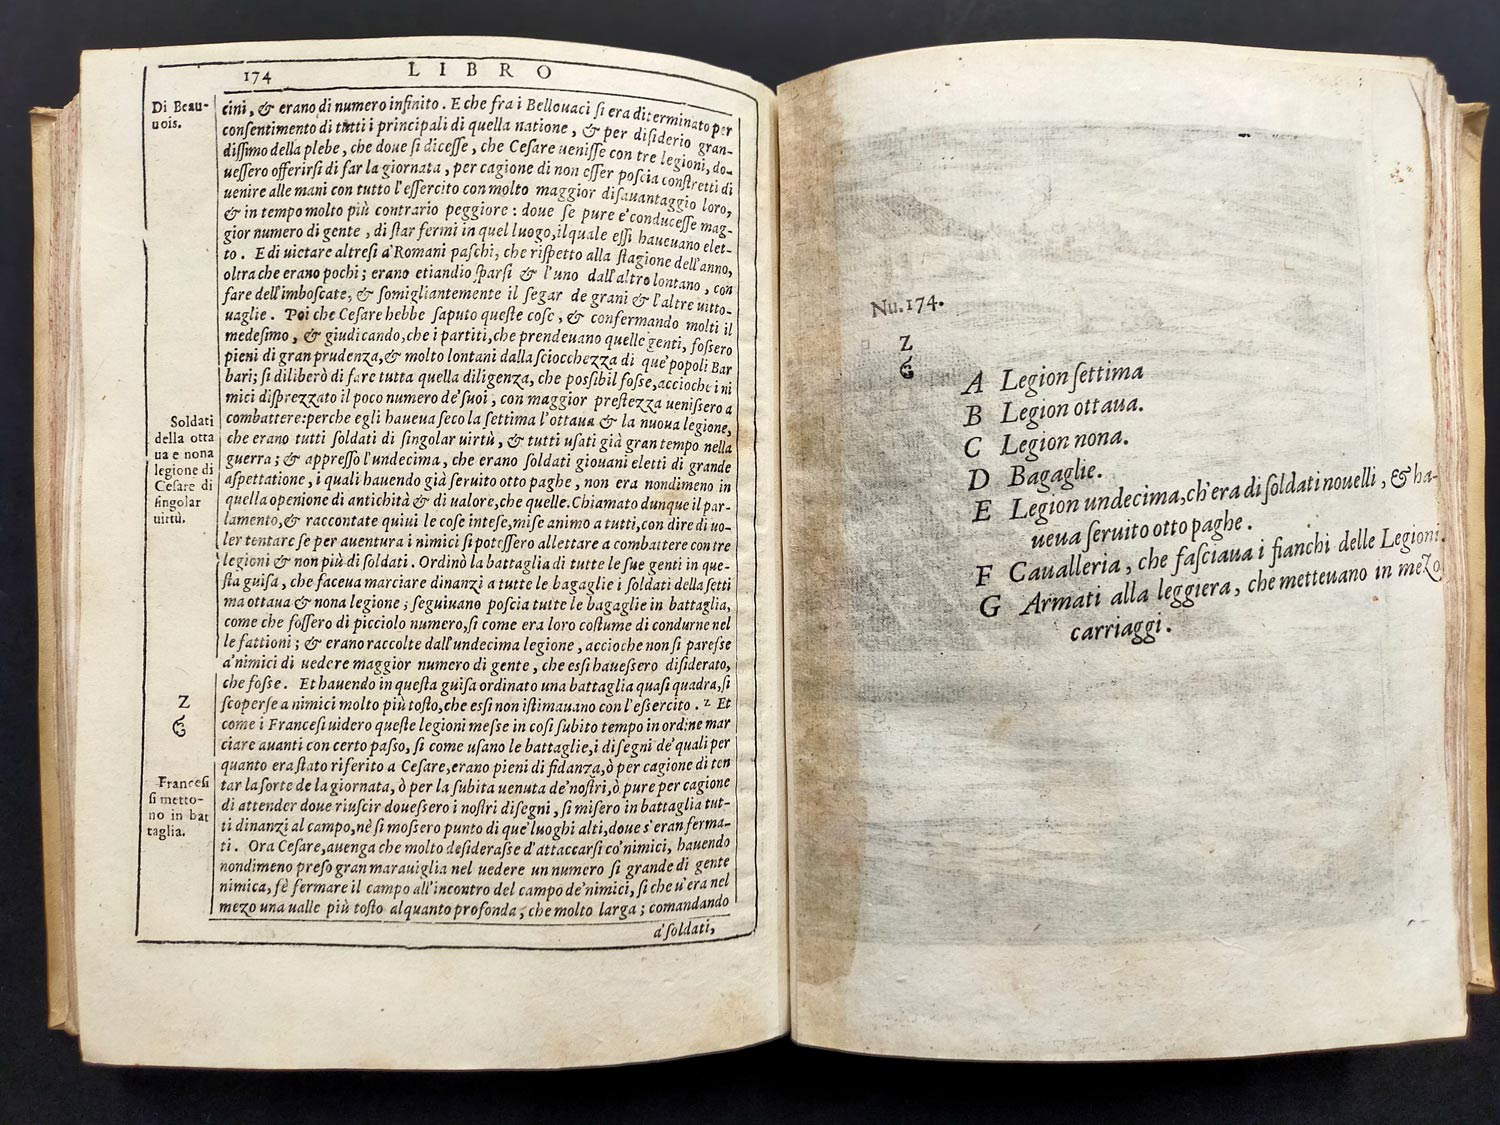 174
LIBRO
Di Beau-
uois.
cini, & erano di numero infinito. E che fra i Bellouaci si era diterminato per
consentimento di tutti i principali di quella natione, & per disiderio gran-
dissimo della plebe, che doue si dicesse, che Cesare uenisse con tre legioni, do-
uessero offerirsi di far la giornata, per cagione di non esser poscia constretti di
uenire alle mani con tutto l'essercito con molto maggior disauantaggio loro,
& in tempo molto più contrario peggiore: doue se pure e' conducesse mag-
gior numero di gente, di star fermi in quel luogo, il quale essi haueuano elet-
to. E di uietare altresi a' Romani paschi, che rispetto alla stagione dell'anno,
oltra che erano pochi; erano etiandio sparsi & l'uno dall'altro lontano, con
fare dell'imboscate, & somigliantemente il segar de grani & l'altre uitto-
uaglie. Poi che Cesare hebbe saputo queste cose, & confermando molti il
medesimo, & giudicando, che i partiti, che prendeuano quelle genti, fossero
pieni di gran prudenza, & molto lontani dalla sciocchezza di que' popoli Bar
bari; si diliberò di fare tutta quella diligenza, che possibil fosse, accioche i ni
mici disprezzato il poco numero de' suoi, con maggior prestezza uenissero a
combattere: perche egli haueua seco la settima l'ottaua & la nuoua legione,
che erano tutti soldati di singolar uirtù, & tutti usati già gran tempo nella
guerra; & appresso l'undecima, che erano soldati giouani eletti di grande
aspettatione, i quali hauendo già seruito otto paghe, non era nondimeno in
quella openione di antichità & di ualore, che quelle. Chiamato dunque il par-
lamento, & raccontate quiui le cose intese, mise animo a tutti, con dire di uo-
ler tentare se per auentura i nimici si potessero allettare a combattere con tre
legioni & non più di soldati. Ordinò la battaglia di tutte le sue genti in que-
sta guisa, che faceua marciare dinanzi a tutte le bagaglie i soldati della setti
ma ottaua & nona legione; seguiuano poscia tutte le bagaglie in battaglia,
come che fossero di picciolo numero, si come era loro costume di condurne nel
le fattioni; & erano raccolte dall'undecima legione, accioche non si paresse
a' nimici di uedere maggior numero di gente, che essi hauessero disiderato,
che fosse. Et hauendo in questa guisa ordinato una battaglia quasi quadra, si
scoperse a nimici molto più tosto, che essi non istimauano con l'essercito. Z Et
come i Francesi uidero queste legioni messe in cosi subito tempo in ordine mar
ciare auanti con certo passo, si come usano le battaglie, i disegni de' quali per
quanto era stato riferito a Cesare, erano pieni di fidanza, ò per cagione di ten
tar la sorte de la giornata, ò per la subita uenuta de' nostri, ò pure per cagione
di attender doue riuscir douessero i nostri disegni, si misero in battaglia tut-
ti dinanzi al campo, nè si mossero punto di que' luoghi alti, doue s'eran ferma-
ti. Ora Cesare, auenga che molto desiderasse d'attaccarsi co' nimici, hauendo
nondimeno preso gran marauiglia nel uedere un numero si grande di gente
nimica, fè fermare il campo all'incontro del campo de' nimici, si che u'era nel
mezo una ualle più tosto alquanto profonda, che molto larga; comandando
a' soldati,
Soldati
della otta
ua e nona
legione di
Cesare di
singolar
uirtù.
Z
Francesi
si metto-
no in bat
taglia.
Nu. 174.
Z
A Legion settima
B Legion ottaua.
C Legion nona.
D Bagaglie.
E Legion undecima, ch'era di soldati nouelli, & ha-
ueua seruito otto paghe.
F Caualleria, che fasciaua i fianchi delle Legioni.
G Armati alla leggiera, che metteuano in mezo
carriaggi.